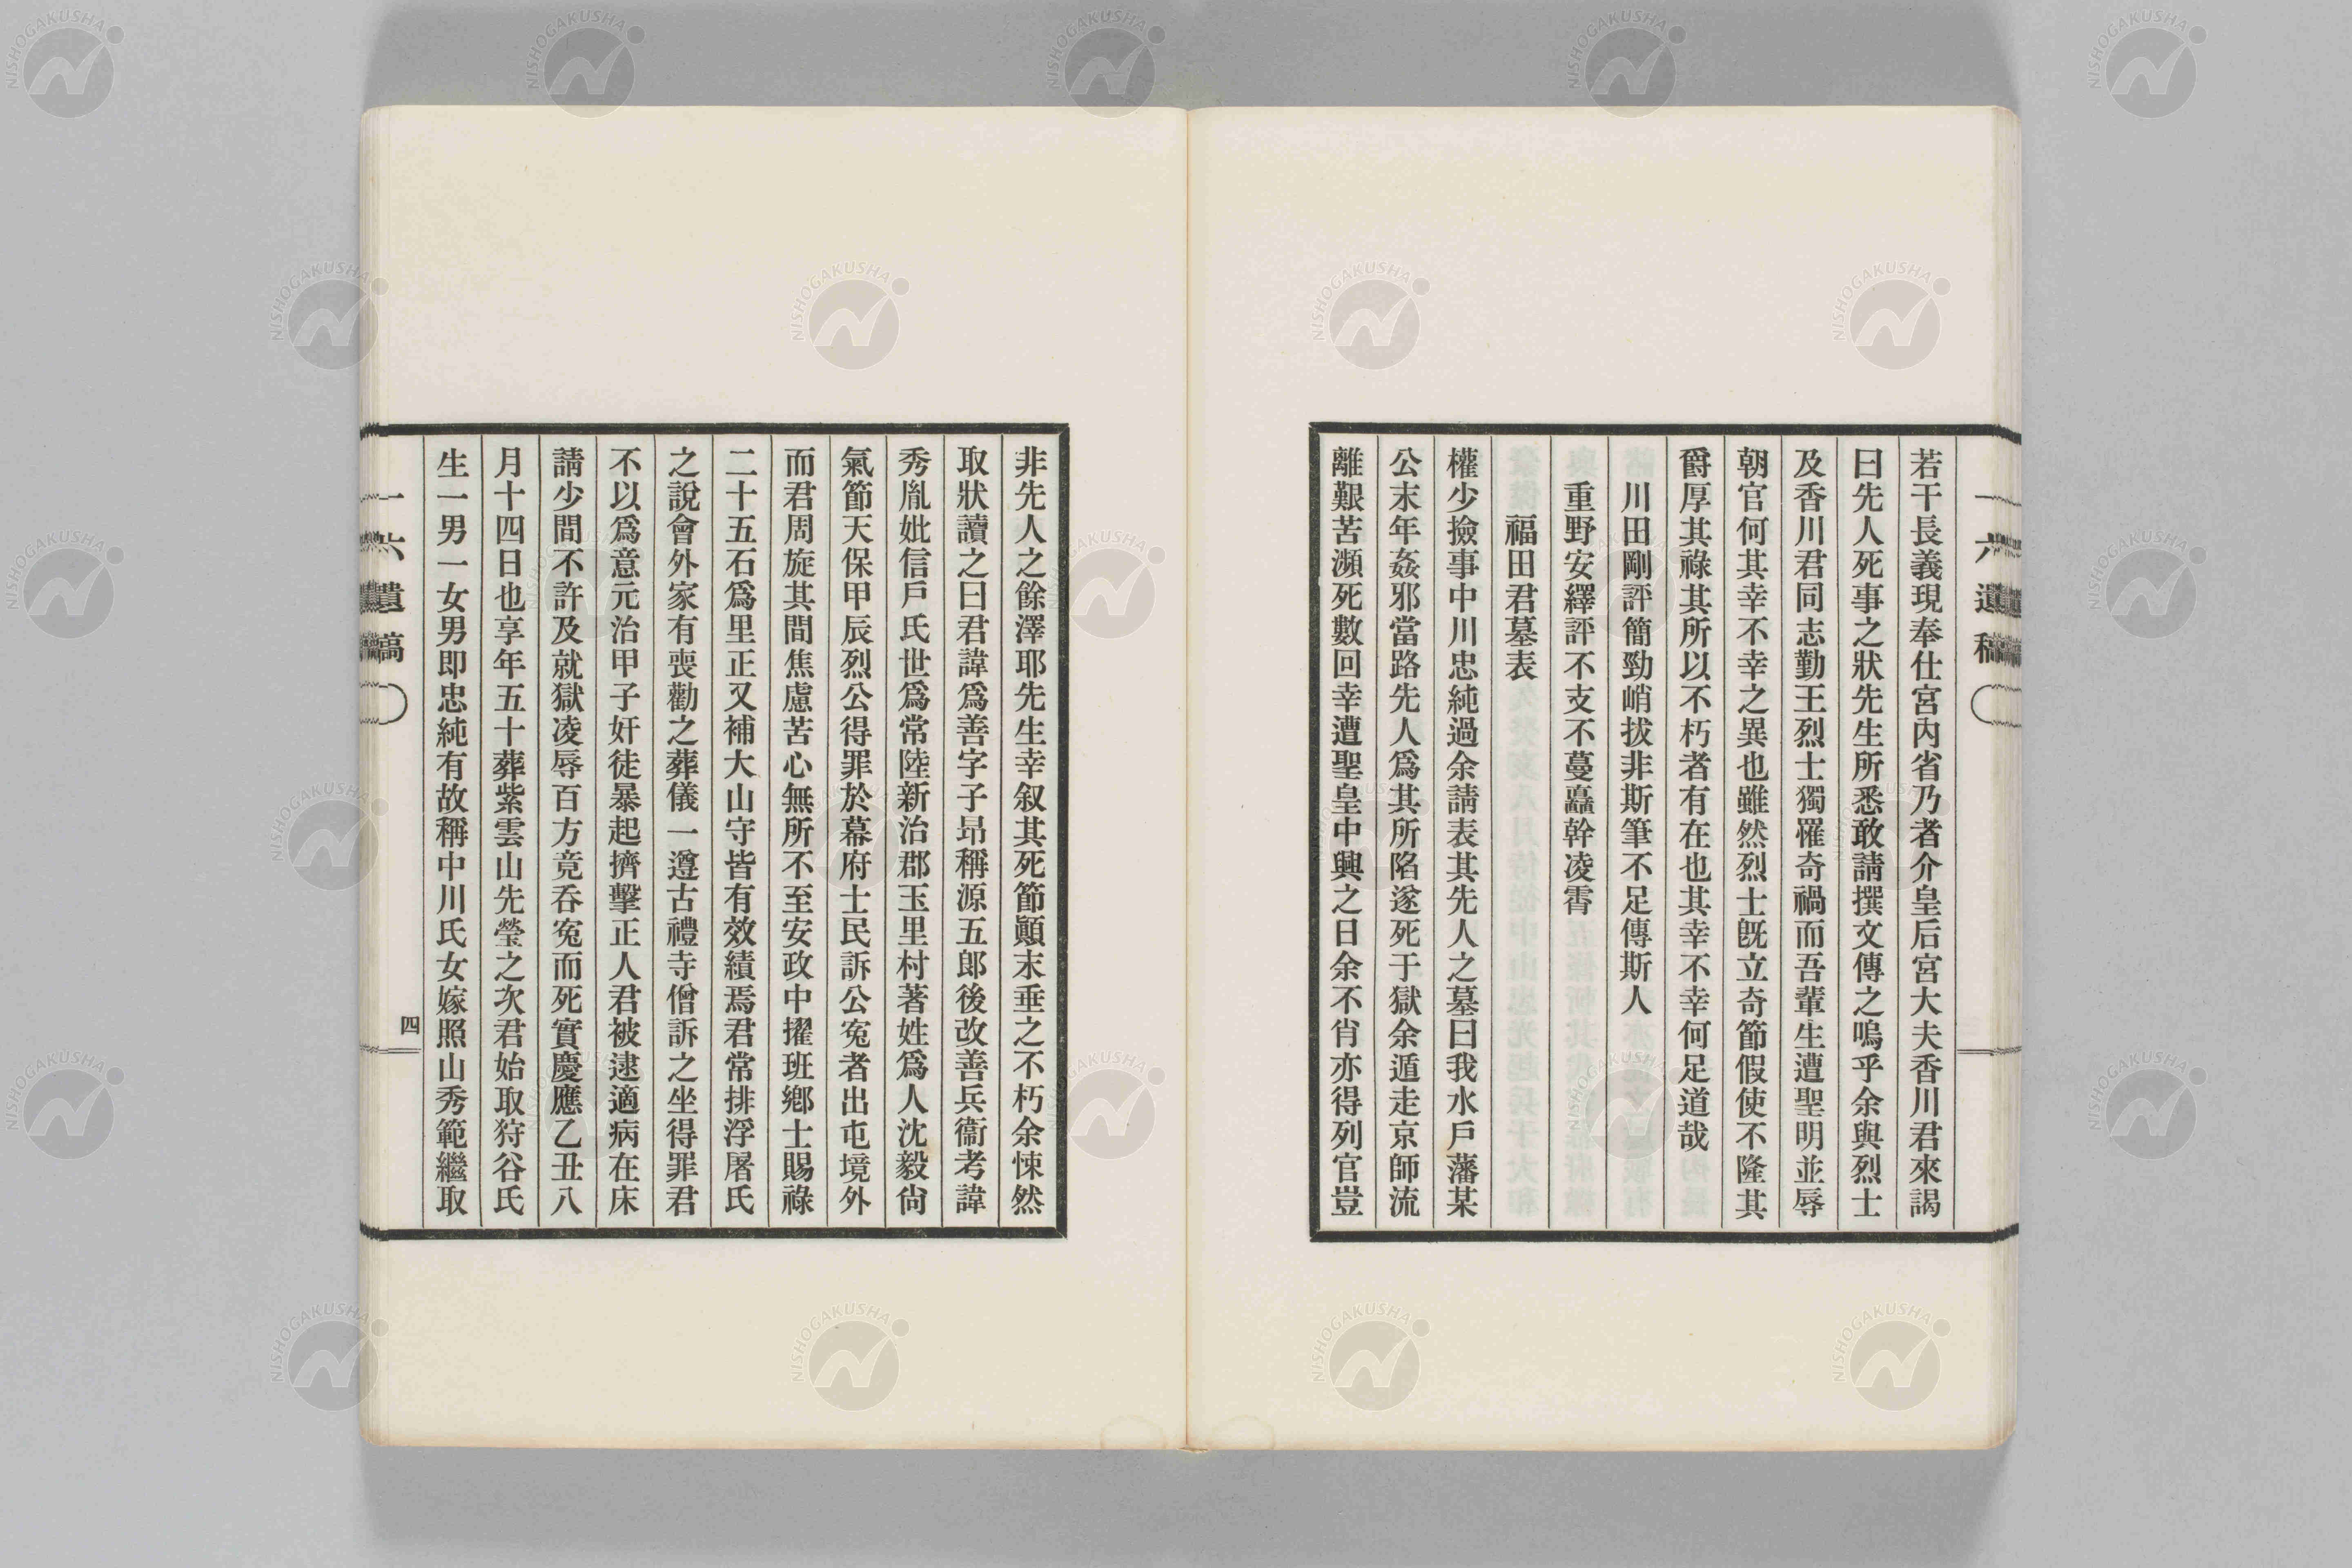 一六遺稿
若干長義現奉仕宮內省乃者介皇后宮大夫香川君來謁
曰先人死事之狀先生所悉敢請撰文傳之嗚乎余與烈士
及香川君同志勤王烈士獨罹奇禍而吾輩生遭聖明並辱
朝官何其幸不幸之異也雖然烈士既立奇節假使不隆其
爵厚其祿其所以不朽者有在也其幸不幸何足道哉
川田剛評簡勁峭拔非斯筆不足傳斯人
重野安繹評不支不蔓矗幹凌霄
福田君墓表
權少撿事中川忠純過余請表其先人之墓曰我水戶藩某
公末年姦邪當路先人爲其所陷遂死于獄余遁走京師流
離艱苦瀕死數回幸遭聖皇中興之日余不肖亦得列官豈
非先人之餘澤耶先生幸叙其死節顚末垂之不朽余悚然
取狀讀之曰君諱爲善字子昻稱源五郎後改善兵衞考諱
秀胤妣信戶氏世爲常陸新治郡玉里村著姓爲人沈毅尙
氣節天保甲辰烈公得罪於幕府士民訴公寃者出屯境外
而君周旋其間焦慮苦心無所不至安政中擢班鄕士賜祿
二十五石爲里正又補大山守皆有效績焉君常排浮屠氏
之說會外家有喪勸之葬儀一遵古禮寺僧訴之坐得罪君
不以爲意元治甲子奸徒暴起擠擊正人君被逮適病在床
請少間不許及就獄凌辱百方竟呑寃而死實慶應乙丑八
月十四日也享年五十葬紫雲山先塋之次君始取狩谷氏
生一男一女男即忠純有故稱中川氏女嫁照山秀範繼取
一六遺稿
四
NISHOGAKUSHA